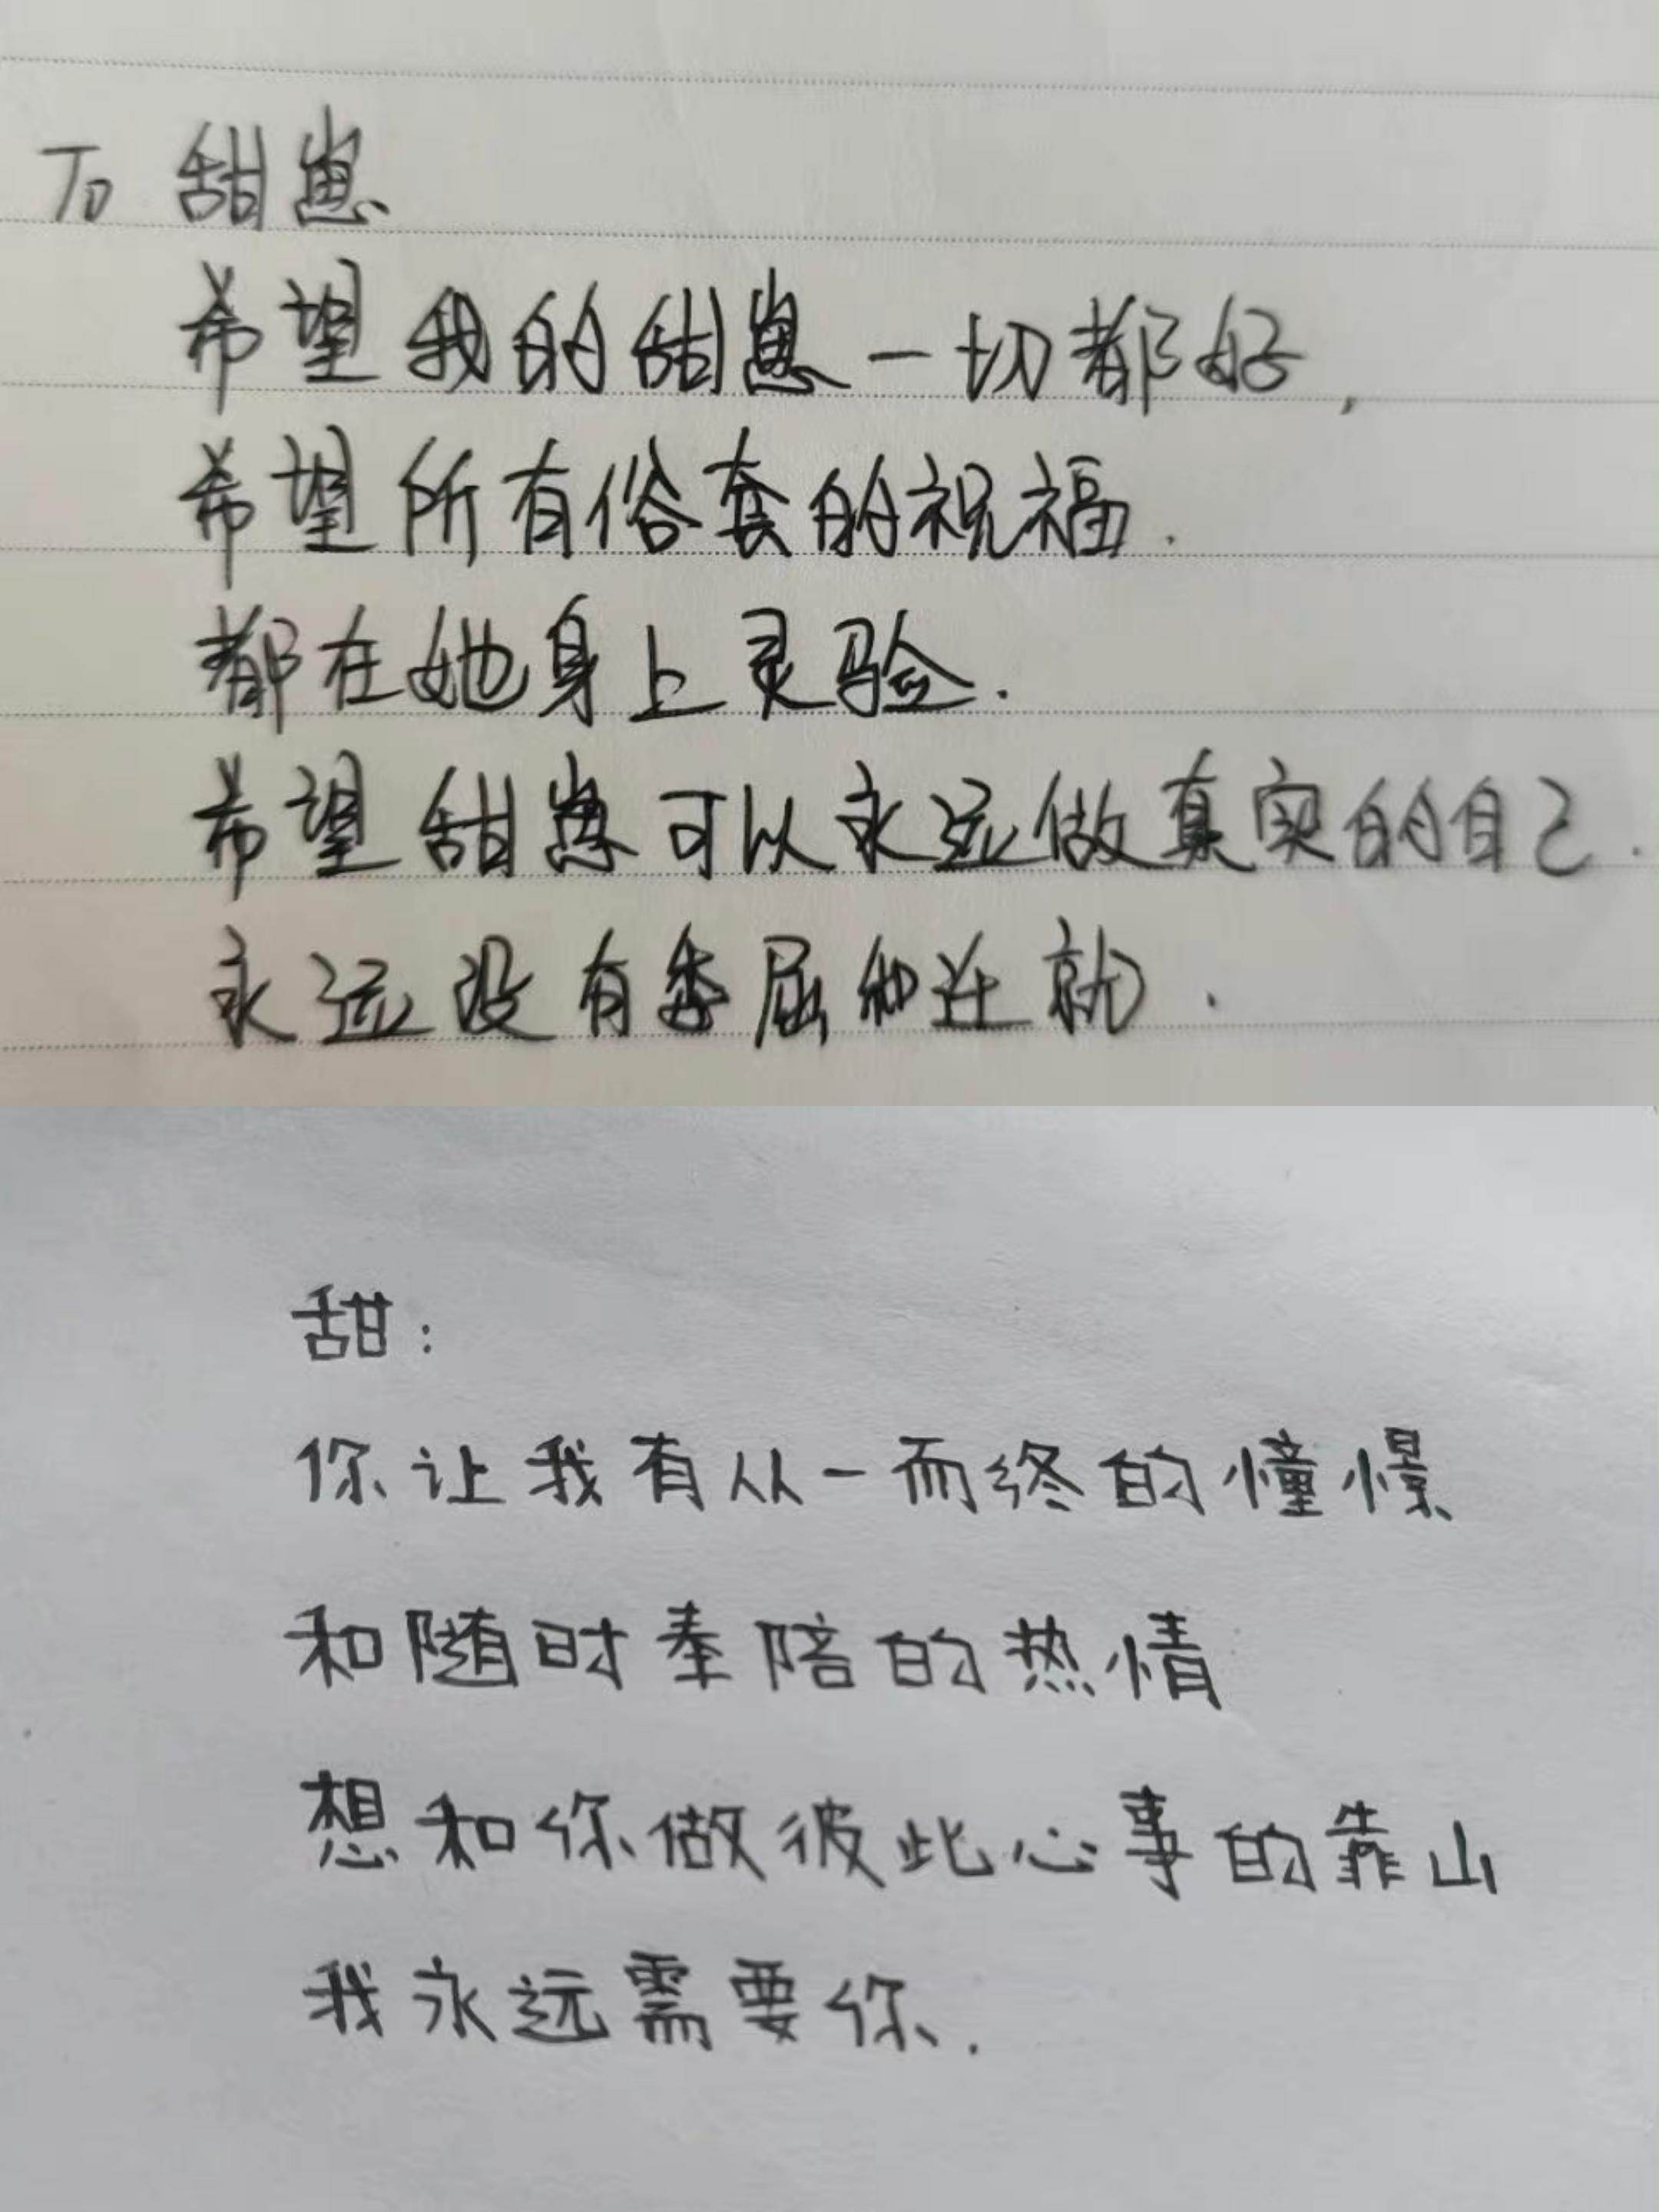 To 甜崽
希望我的甜崽一切都好,
希望所有俗套的祝福.
都在她身上灵验.
希望甜崽可以永远做真实的自己.
永远没有委屈和迁就.
甜:
你让我有从一而终的憧憬
和随时奉陪的热情
想和你做彼此心事的靠山
我永远需要你.